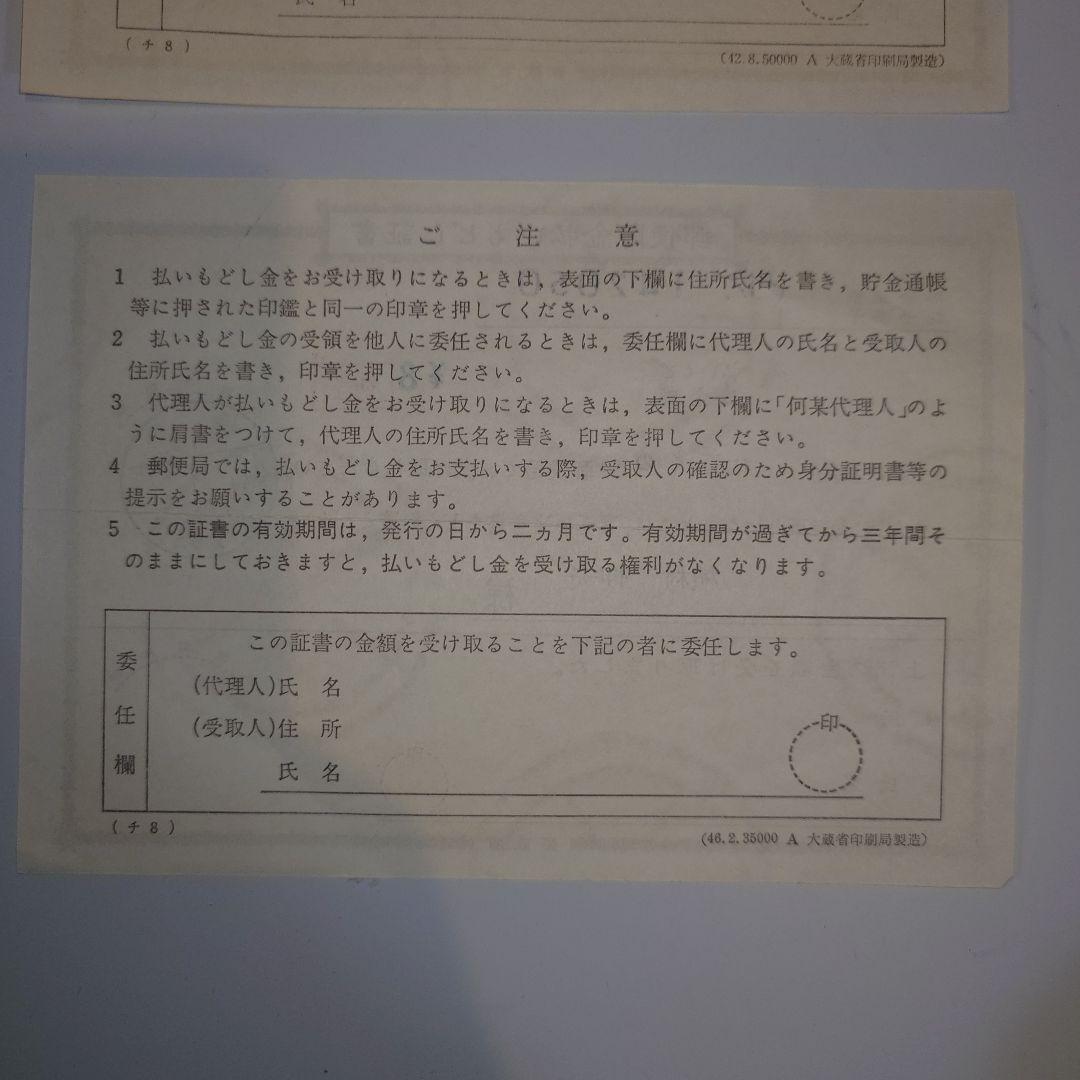 氏 名
(チ8)
(42.8.50000 A 大蔵省印刷局製造)
ご 注 意
1 払いもどし金をお受け取りになるときは，表面の下欄に住所氏名を書き，貯金通帳
等に押された印鑑と同一の印章を押してください。
2 払いもどし金の受領を他人に委任されるときは，委任欄に代理人の氏名と受取人の
住所氏名を書き，印章を押してください。
3 代理人が払いもどし金をお受け取りになるときは，表面の下欄に「何某代理人」のよ
うに肩書をつけて，代理人の住所氏名を書き，印章を押してください。
4 郵便局では，払いもどし金をお支払いする際，受取人の確認のため身分証明書等の
提示をお願いすることがあります。
5 この証書の有効期間は，発行の日から二ヵ月です。有効期間が過ぎてから三年間そ
のままにしておきますと，払いもどし金を受け取る権利がなくなります。
委任欄
この証書の金額を受け取ることを下記の者に委任します。
(代理人)氏 名
(受取人)住 所
印
氏 名
(チ8)
(46.2.35000 A 大蔵省印刷局製造)